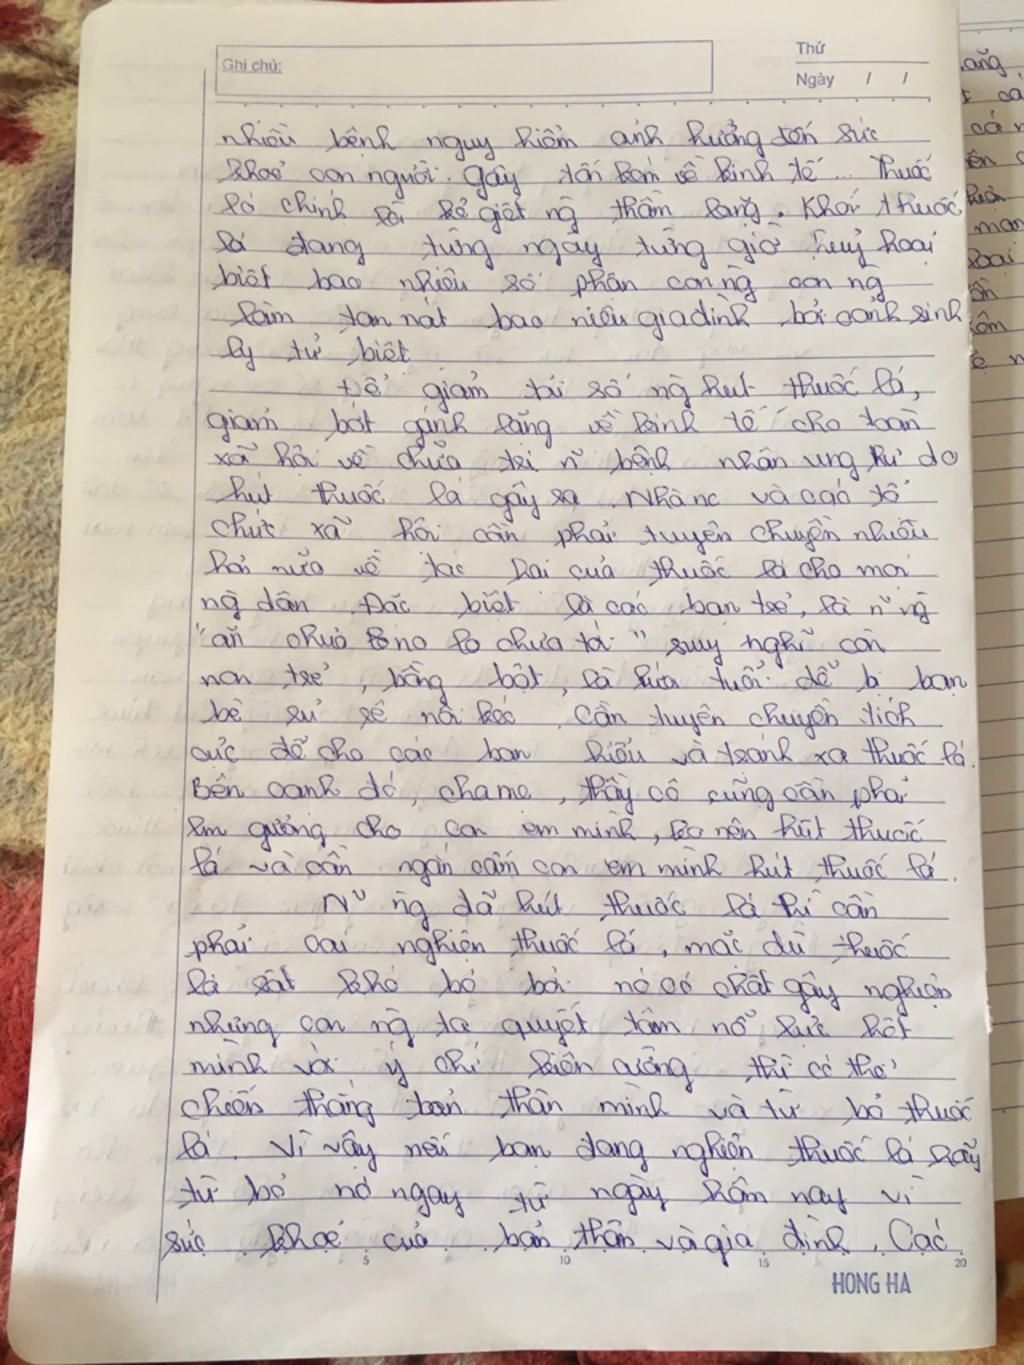 Ghi chú:
Thứ
Ngày / /
nhiều bệnh nguy hiểm ảnh hưởng tới sức
khoẻ con người. Gây tốn kém về kinh tế... Thuốc
lá chính là kẻ giết ng̃ thầm lặng. Khói thuốc
lá đang từng ngày từng giờ huỷ hoại
biết bao nhiêu số phận con ng̃ con ng̃
làm tan nát bao niêu gia đình bởi cảnh sinh
ly tử biệt
Để giảm tải số ng̃ hút thuốc lá,
giảm bớt gánh lặng về kinh tế cho toàn
xã hội về chữa trị n̄ bệnh nhân ung thư do
hút thuốc lá gây ra. Nhà nc và các tổ
chức xã hội cần phải tuyên chuyền nhiều
hơi nữa về tác hại của thuốc lá cho mọi
ng̃ dân. Đặc biệt là các bạn trẻ, là n̄ ng̃
"ăn chưa lo no lo chưa tới" suy nghĩ còn
non trẻ, bồng bột, là lứa tuổi dễ bị bạn
bè sủ sê nôi kéo. Cần tuyên chuyền tích
cực để cho các bạn hiểu và tránh xa thuốc lá.
Bên cạnh đó, cha mẹ, thầy cô cũng cần phải
làm gương cho con em mình, ko nên hút thuốc
lá và cần ngăn cấm con em mình hút thuốc lá.
N̄ ng̃ đã hút thuốc lá thì cần
phải cai nghiện thuốc lá, mặc dù thuốc
lá rất khó bỏ bởi nó có chất gây nghiện
nhưng con ng̃ ta quyết tâm nỗ lực hết
mình với ý chí kiên cường thì có thể
chiến thắng bản thân mình và từ bỏ thuốc
lá. Vì vậy nếu bạn đang nghiện thuốc lá hãy
từ bỏ nó ngay từ ngày hôm nay vì
sức khoẻ của bản thân và gia đình. Các
5 10 15 20
HONG HA